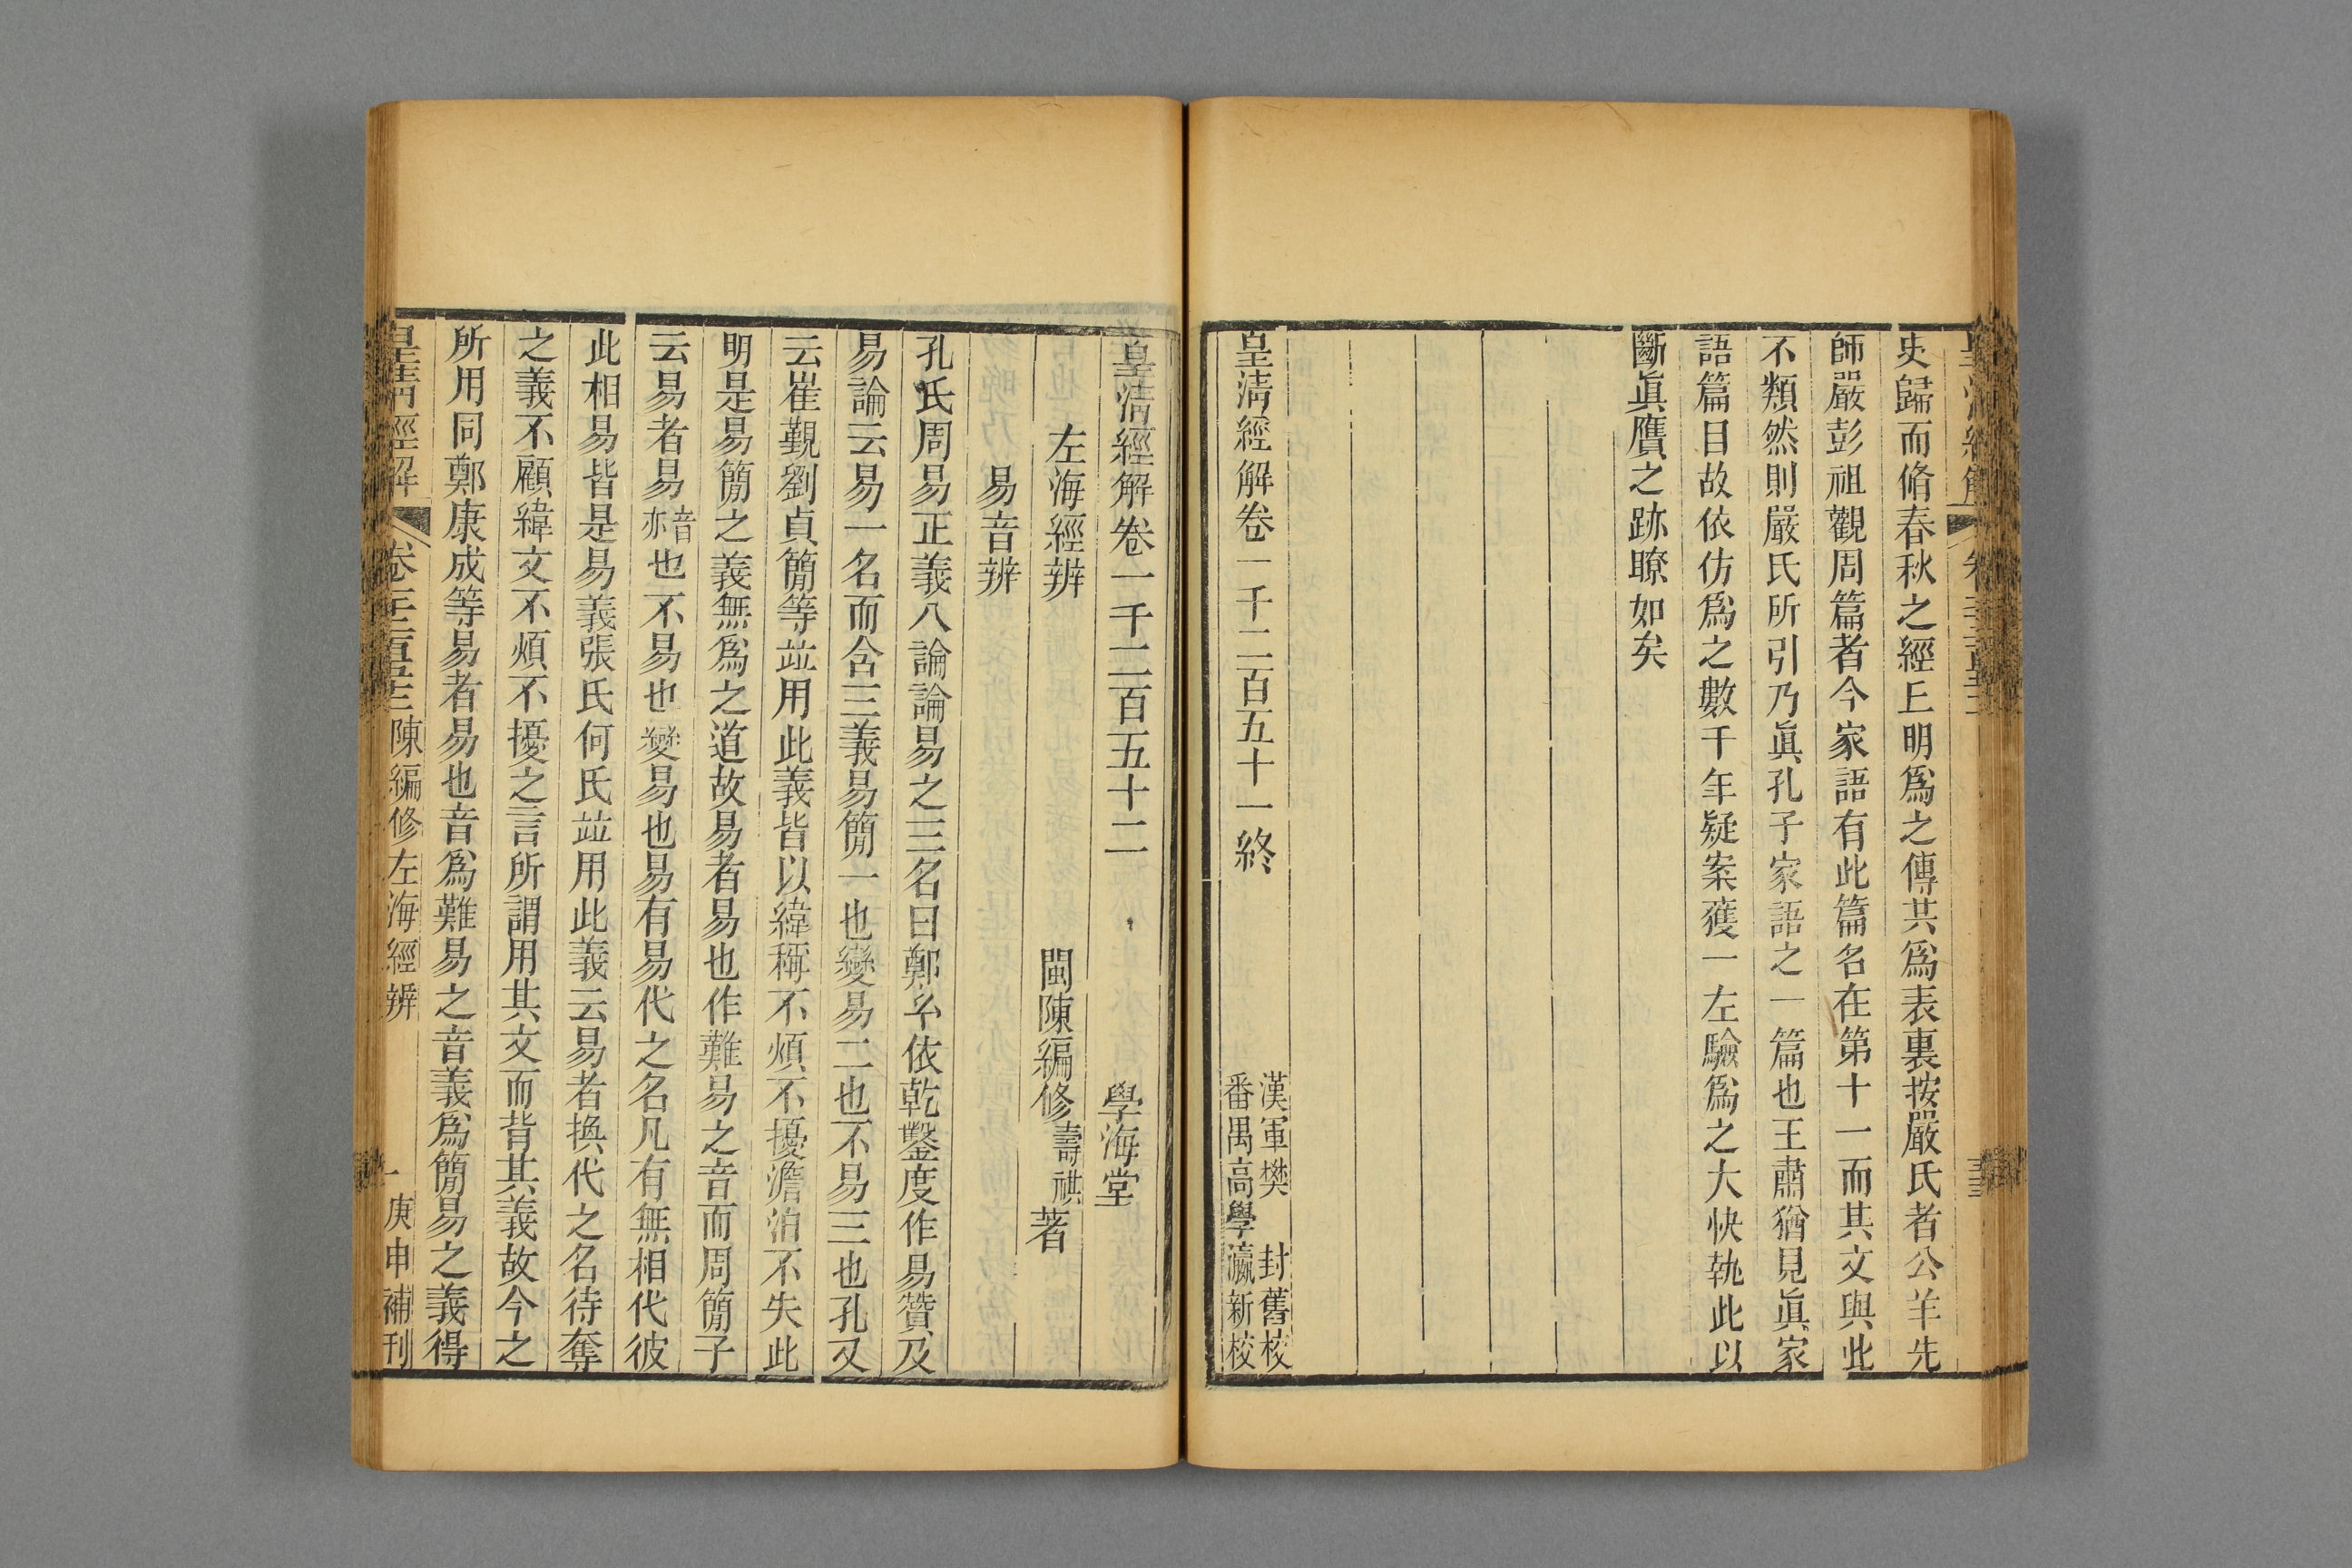 史歸而脩春秋之經丘明爲之傳共爲表裏按嚴氏者公羊先
師嚴彭祖觀周篇者今家語有此篇名在第十一而其文與此
不類然則嚴氏所引乃眞孔子家語之一篇也王肅猶見眞家
語篇目故依仿爲之數千年疑案獲一左驗爲之大快執此以
斷眞贋之跡瞭如矣
皇淸經解卷一千二百五十一終
漢軍樊封舊校
番禺高學瀛新校
皇淸經解卷一千二百五十二
學海堂
左海經辨
閩陳編修壽祺著
易音辨
孔氏周易正義八論論易之三名曰鄭𤣥依乾鑿度作易贊及
易論云易一名而含三義易簡一也變易二也不易三也孔又
云崔覲劉貞簡等並用此義皆以緯稱不煩不擾澹泊不失此
明是易簡之義無爲之道故易者易也作難易之音而周簡子
云易者易音亦也不易也變易也易有易代之名凡有無相代彼
此相易皆是易義張氏何氏並用此義云易者換代之名待奪
之義不顧緯文不煩不擾之言所謂用其文而背其義故今之
所用同鄭康成等易者易也音爲難易之音義爲簡易之義得
皇淸經解
陳編修左海經辨
一
庚申補刊